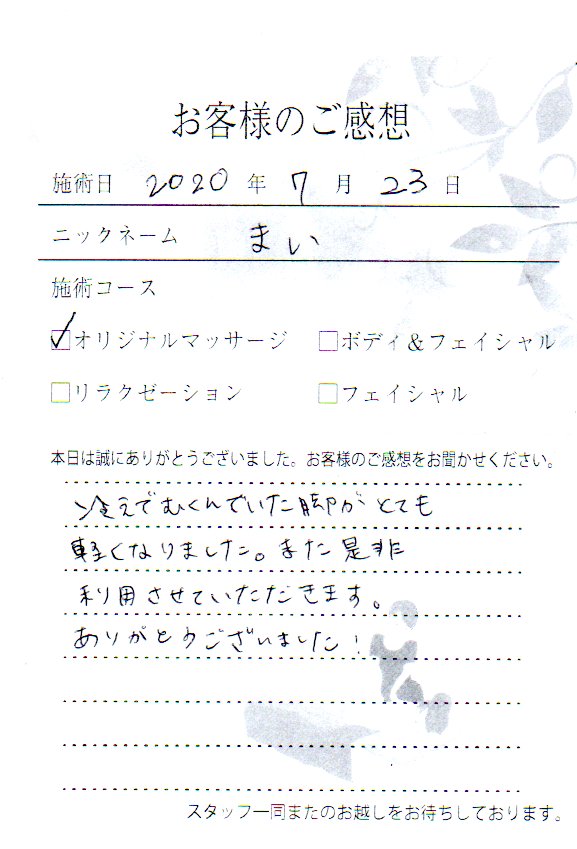 お客様のご感想
施術日 2020 年 7 月 23 日
ニックネーム まい
施術コース
オリジナルマッサージ ボディ&フェイシャル
リラクゼーション フェイシャル
本日は誠にありがとうございました。お客様のご感想をお聞かせください。
冷えでむくんでいた脚がとても
軽くなりました。また是非
利用させていただきます。
ありがとうございました!
スタッフ一同またのお越しをお待ちしております。